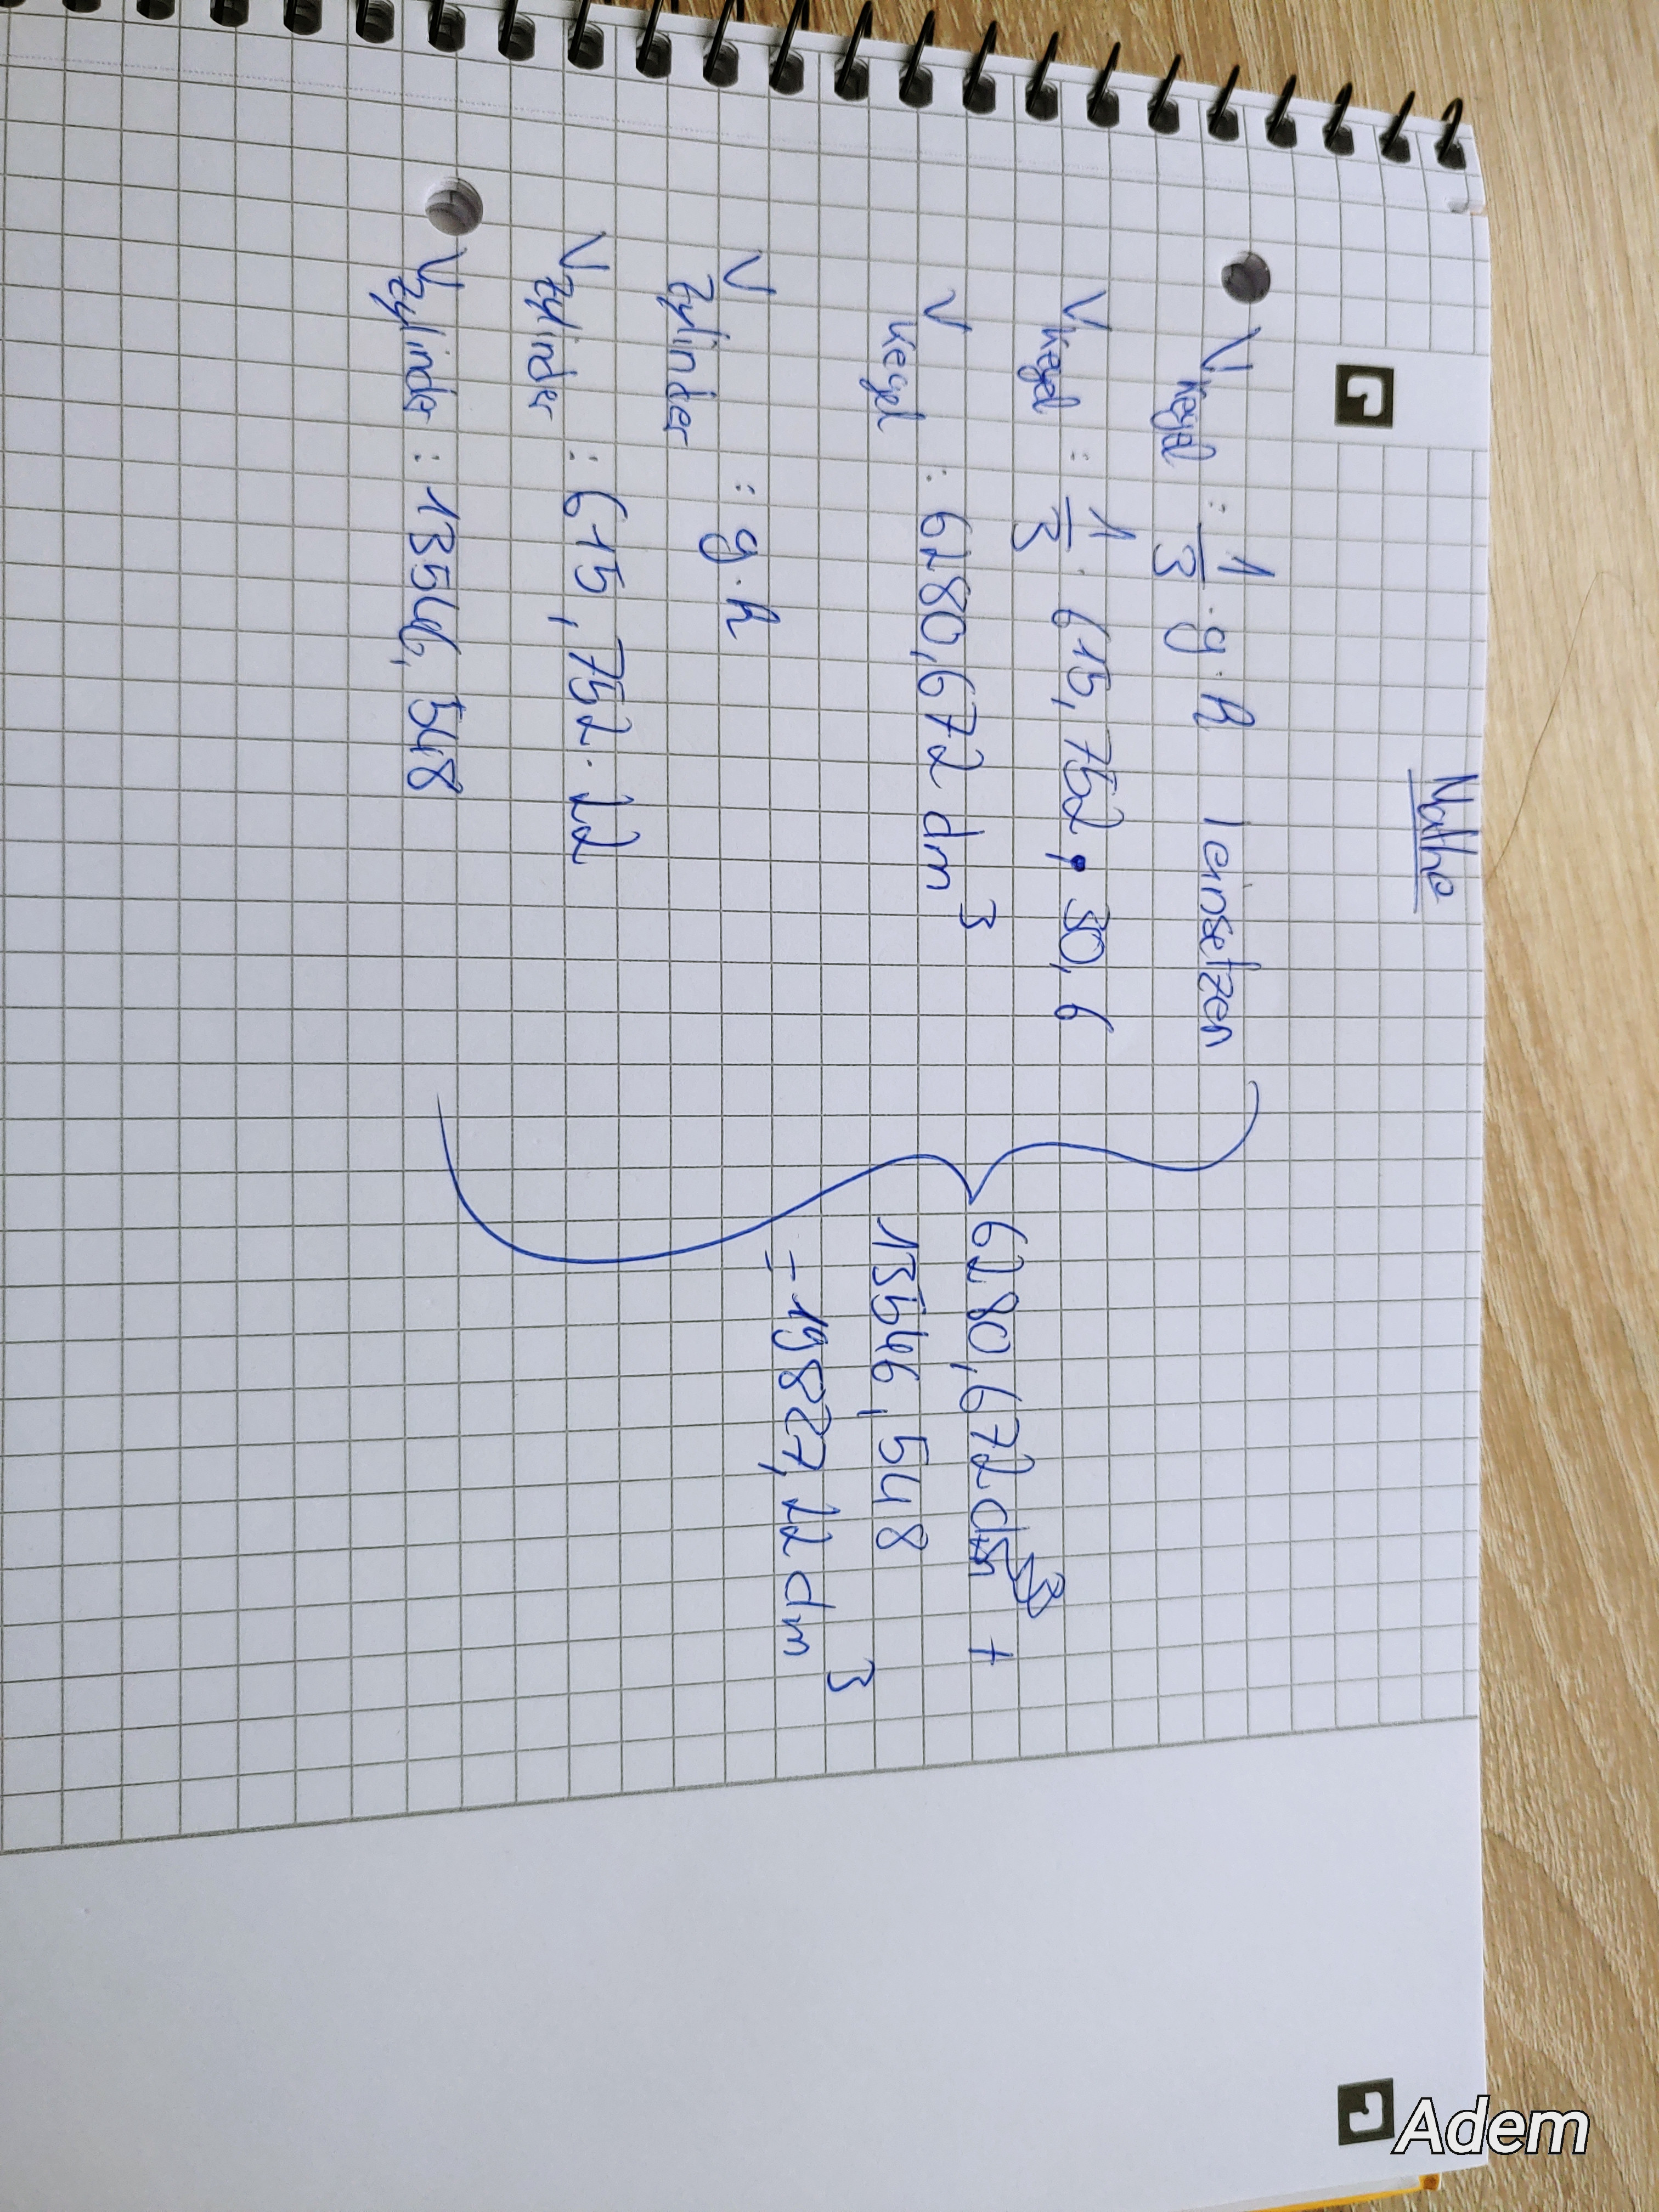 Mathe
V Kegel : 1/3 · g · h | einsetzen
V Kegel : 1/3 · 615,752 · 30,6
V Kegel : 6280,672 dm³
V Zylinder : g · h
V Zylinder : 615,752 · 22
V Zylinder : 13546,548
6280,672 dm³ +
13546,548
= 19827,22 dm³
Adem